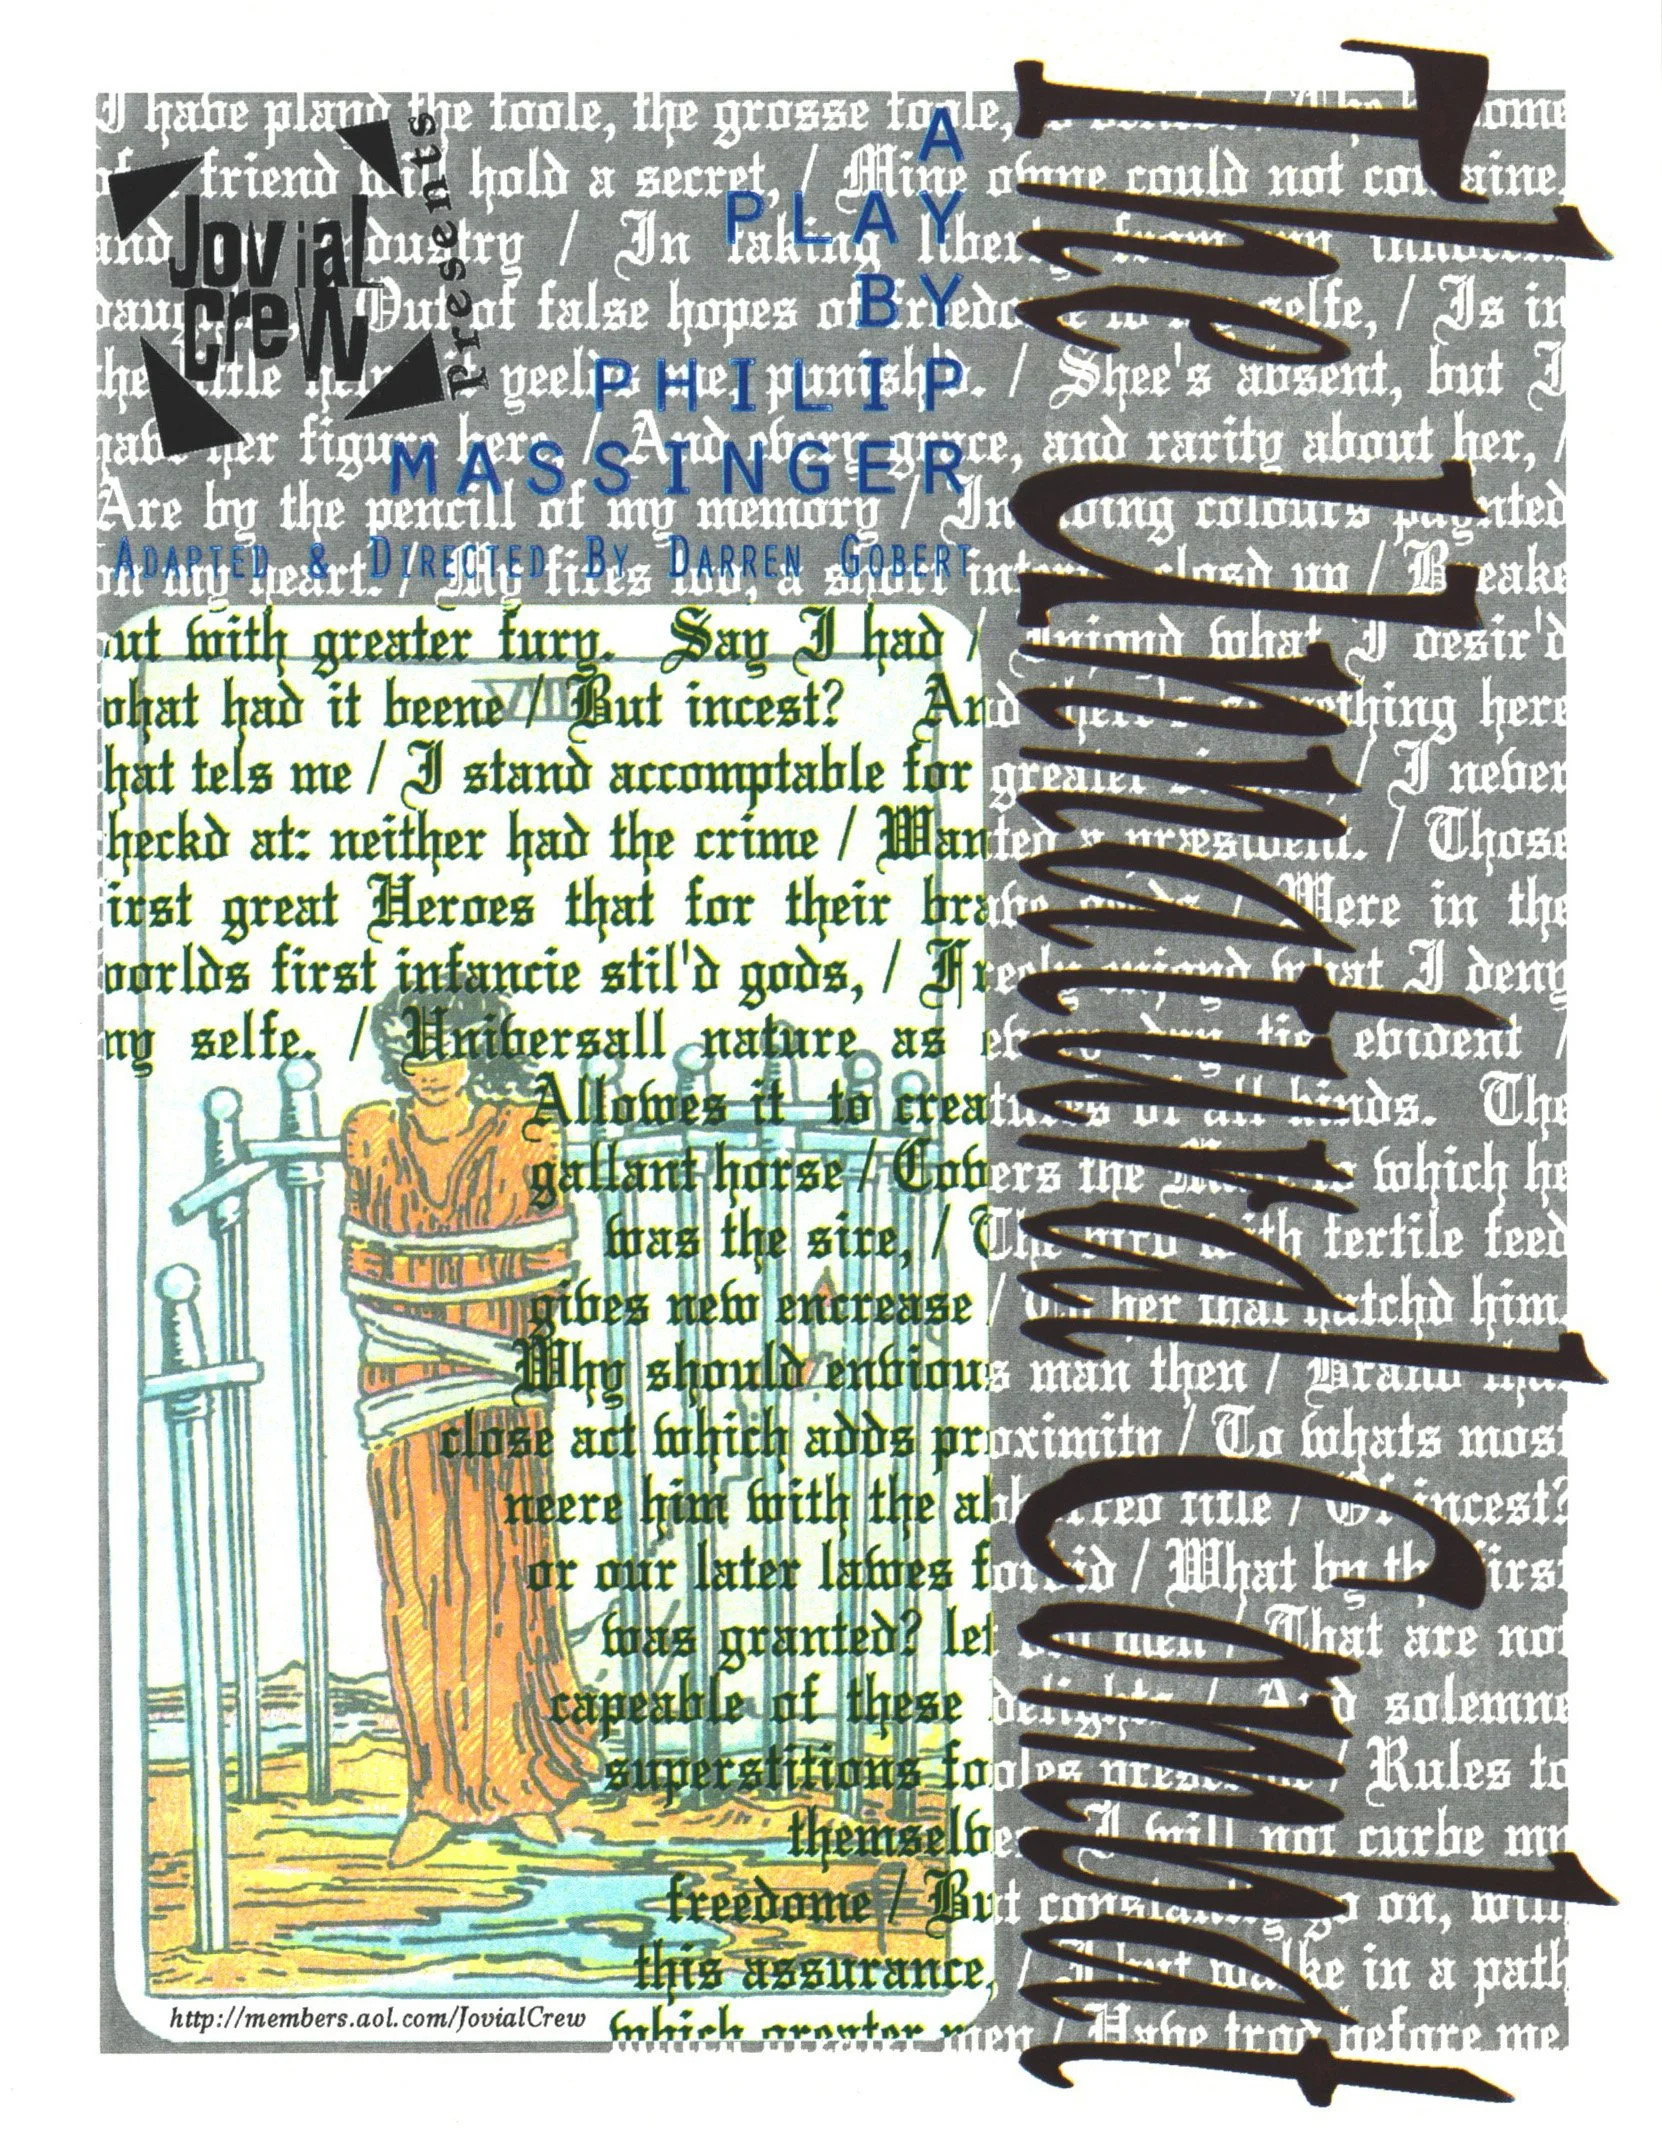 Jovial
Crew
Presents
A
PLAY
BY
PHILIP
MASSINGER
ADAPTED & DIRECTED BY DARREN GOBERT
The Unnatural Combat
I have pland the toole, the grosse toole,
friend will hold a secret, / Mine owne could not containe,
and industry / In taking liberty from innocent
Out of false hopes of freedome to my selfe, / Is in
the little yeelds me, punish'd. / Shee's absent, but I
have her figure here, / And every grace, and rarity about her, /
Are by the pencill of my memory / In living colours paynted
on my heart. / My fires too, a short closd up / Breake
out with greater fury. Say I had / Injoyd what I desir'd
what had it beene / But incest? And there's something here
that tels me / I stand accomptable for greater / I never
checkd at: neither had the crime / Wanted a præsident. / Those
first great Heroes that for their brave / Were in the
worlds first infancie stil'd gods, / Freely enjoyd what I deny
my selfe. / Universall nature as every day tis evident /
Allowes it to creatures of all kinds. The
gallant horse / Covers the Mare to which he
was the sire, / The bird with fertile feed
gives new encrease / To her that hatchd him.
Why should envious man then / Brand that
close act which adds proximity / To whats most
neere him with the abhorred title / Of incest?
or our later lawes forbid / What by the first
was granted? let men / That are not
capeable of these delights / And solemne
superstitious fooles prescribe / Rules to
themselves I will not curbe my
freedome / But constantly go on, with
this assurance, / I but walke in a path
which greater men / Have trod before me.
http://members.aol.com/JovialCrew